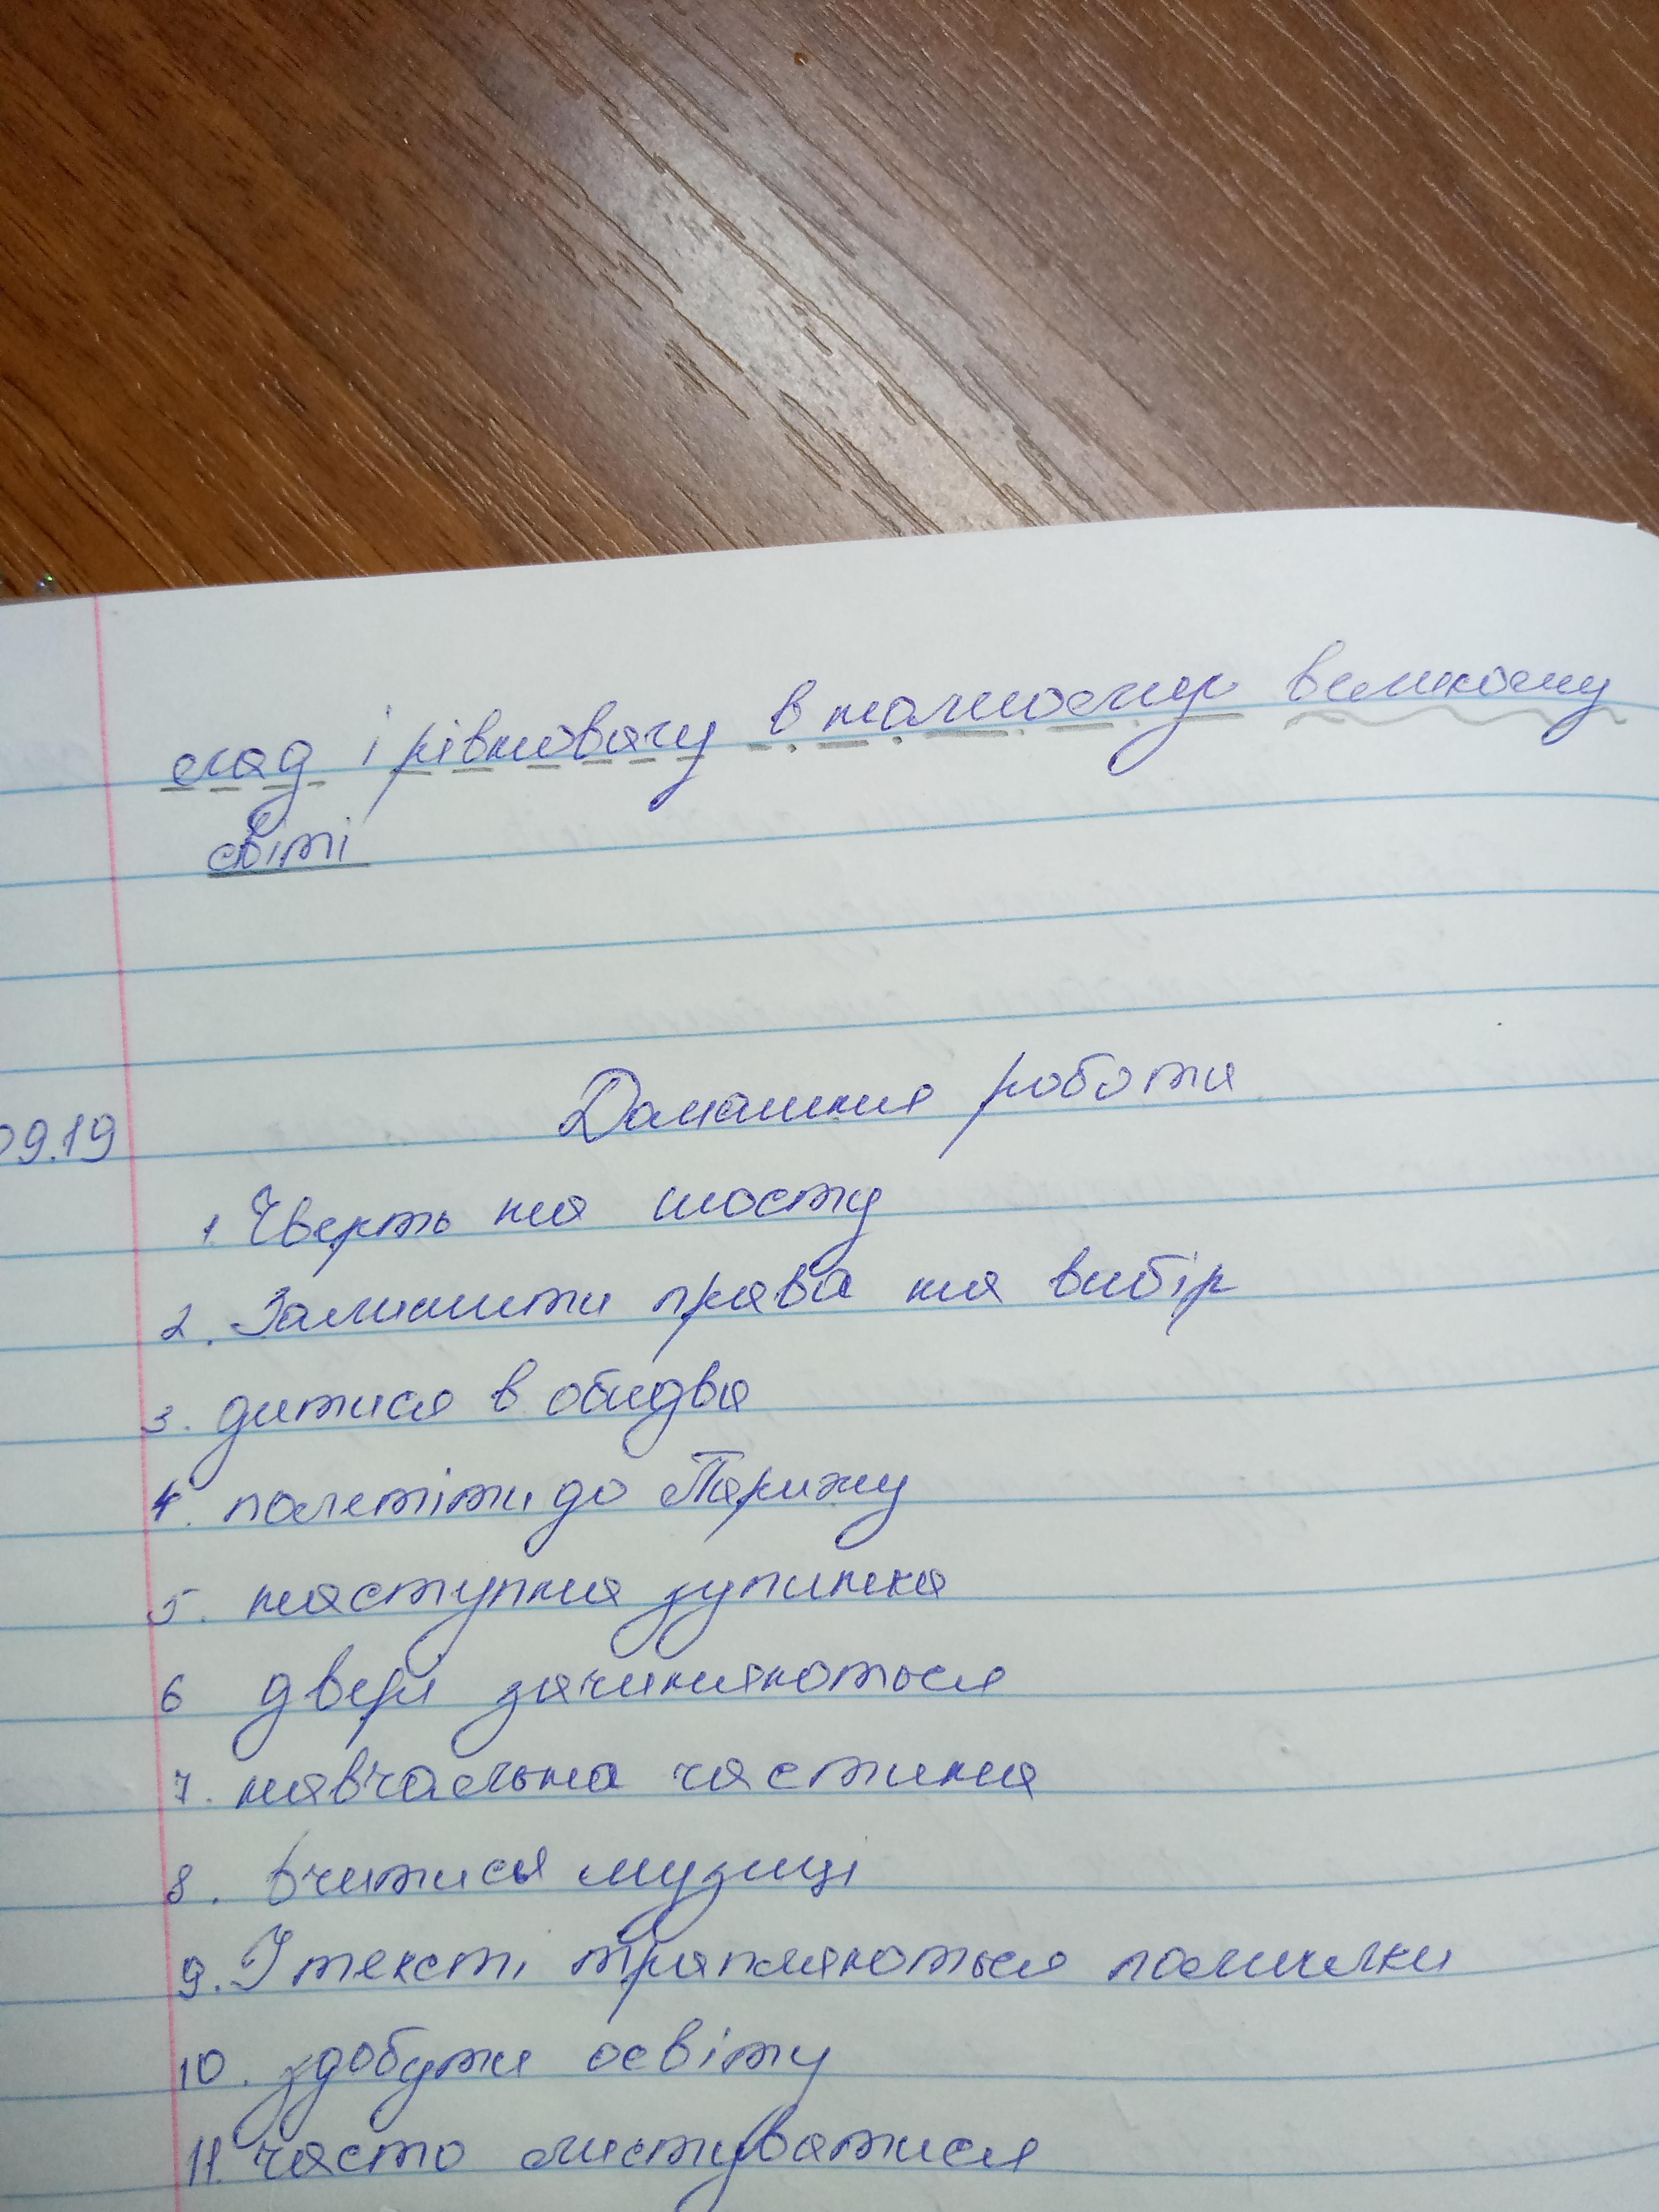 лад і рівновагу в такому великому
світі
Домашня робота
09.19
1. Чверть на шосту
2. Залишити права на вибір
3. дитися в обидва
4. полетіти до Парижу
5. наступна зупинка
6 двері зачиняються
7. навчальна частина
8. вчитися музиці
9. У тексті трапляються помилки
10. здобути освіту
11. часто листуватися